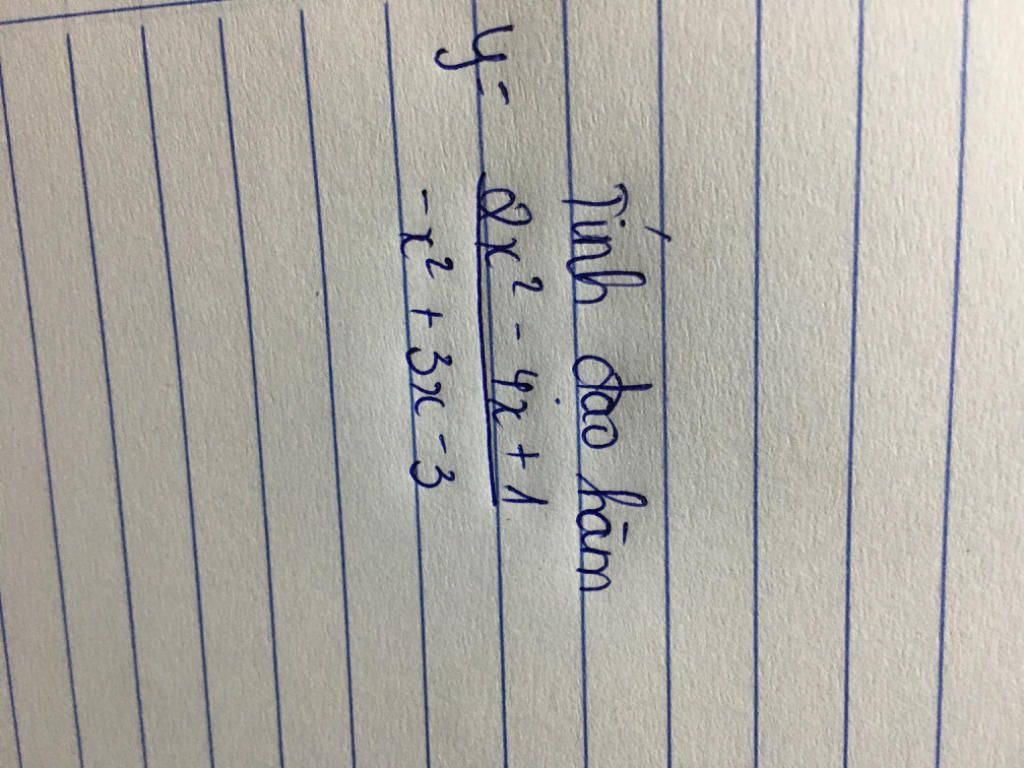 Tính đạo hàm
y = 2x² - 4x + 1
-x² + 3x - 3